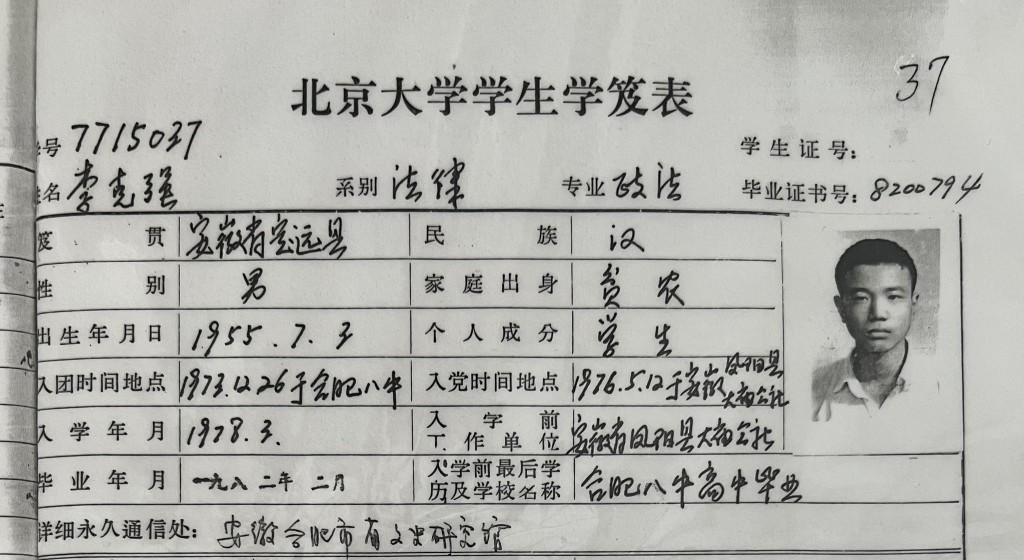 北京大学学生学笈表
37
号 7715037
学生证号：
姓名 李克强 系别 法律 专业 政法 毕业证书号：8200794
笈贯 安徽省定远县 民族 汉
性别 男 家庭出身 贫农
出生年月日 1955.7.3 个人成分 学生
入团时间地点 1973.12.26于合肥八中 入党时间地点 1976.5.12于安徽凤阳县大庙公社
入学年月 1978.3. 入学前工作单位 安徽省凤阳县大庙公社
毕业年月 一九八二年 二月 入学前最后学历及学校名称 合肥八中高中毕业
详细永久通信处：安徽合肥市省文史研究馆